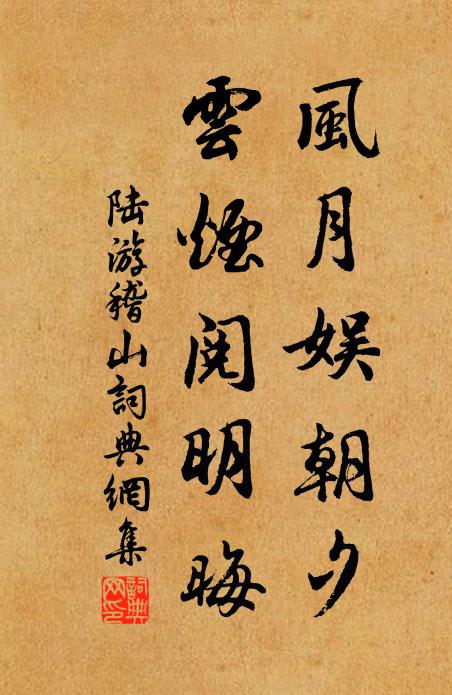 風月娱朝夕
雲煙閲明晦
陆游稽山詞典網集
詞典網印